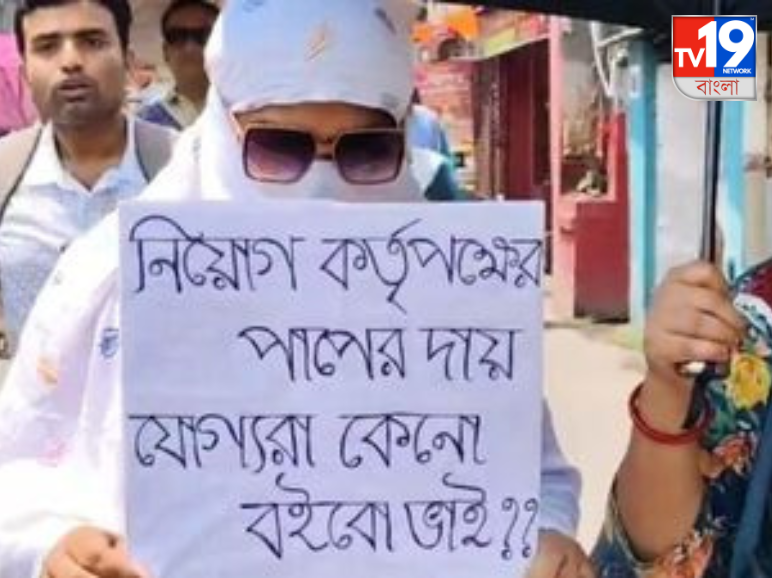 TV19
NETWORK
বাংলা
নিয়োগ কর্তৃপক্ষের
পাপের দায়
যোগ্যরা কেনো
বইবো ভাই??